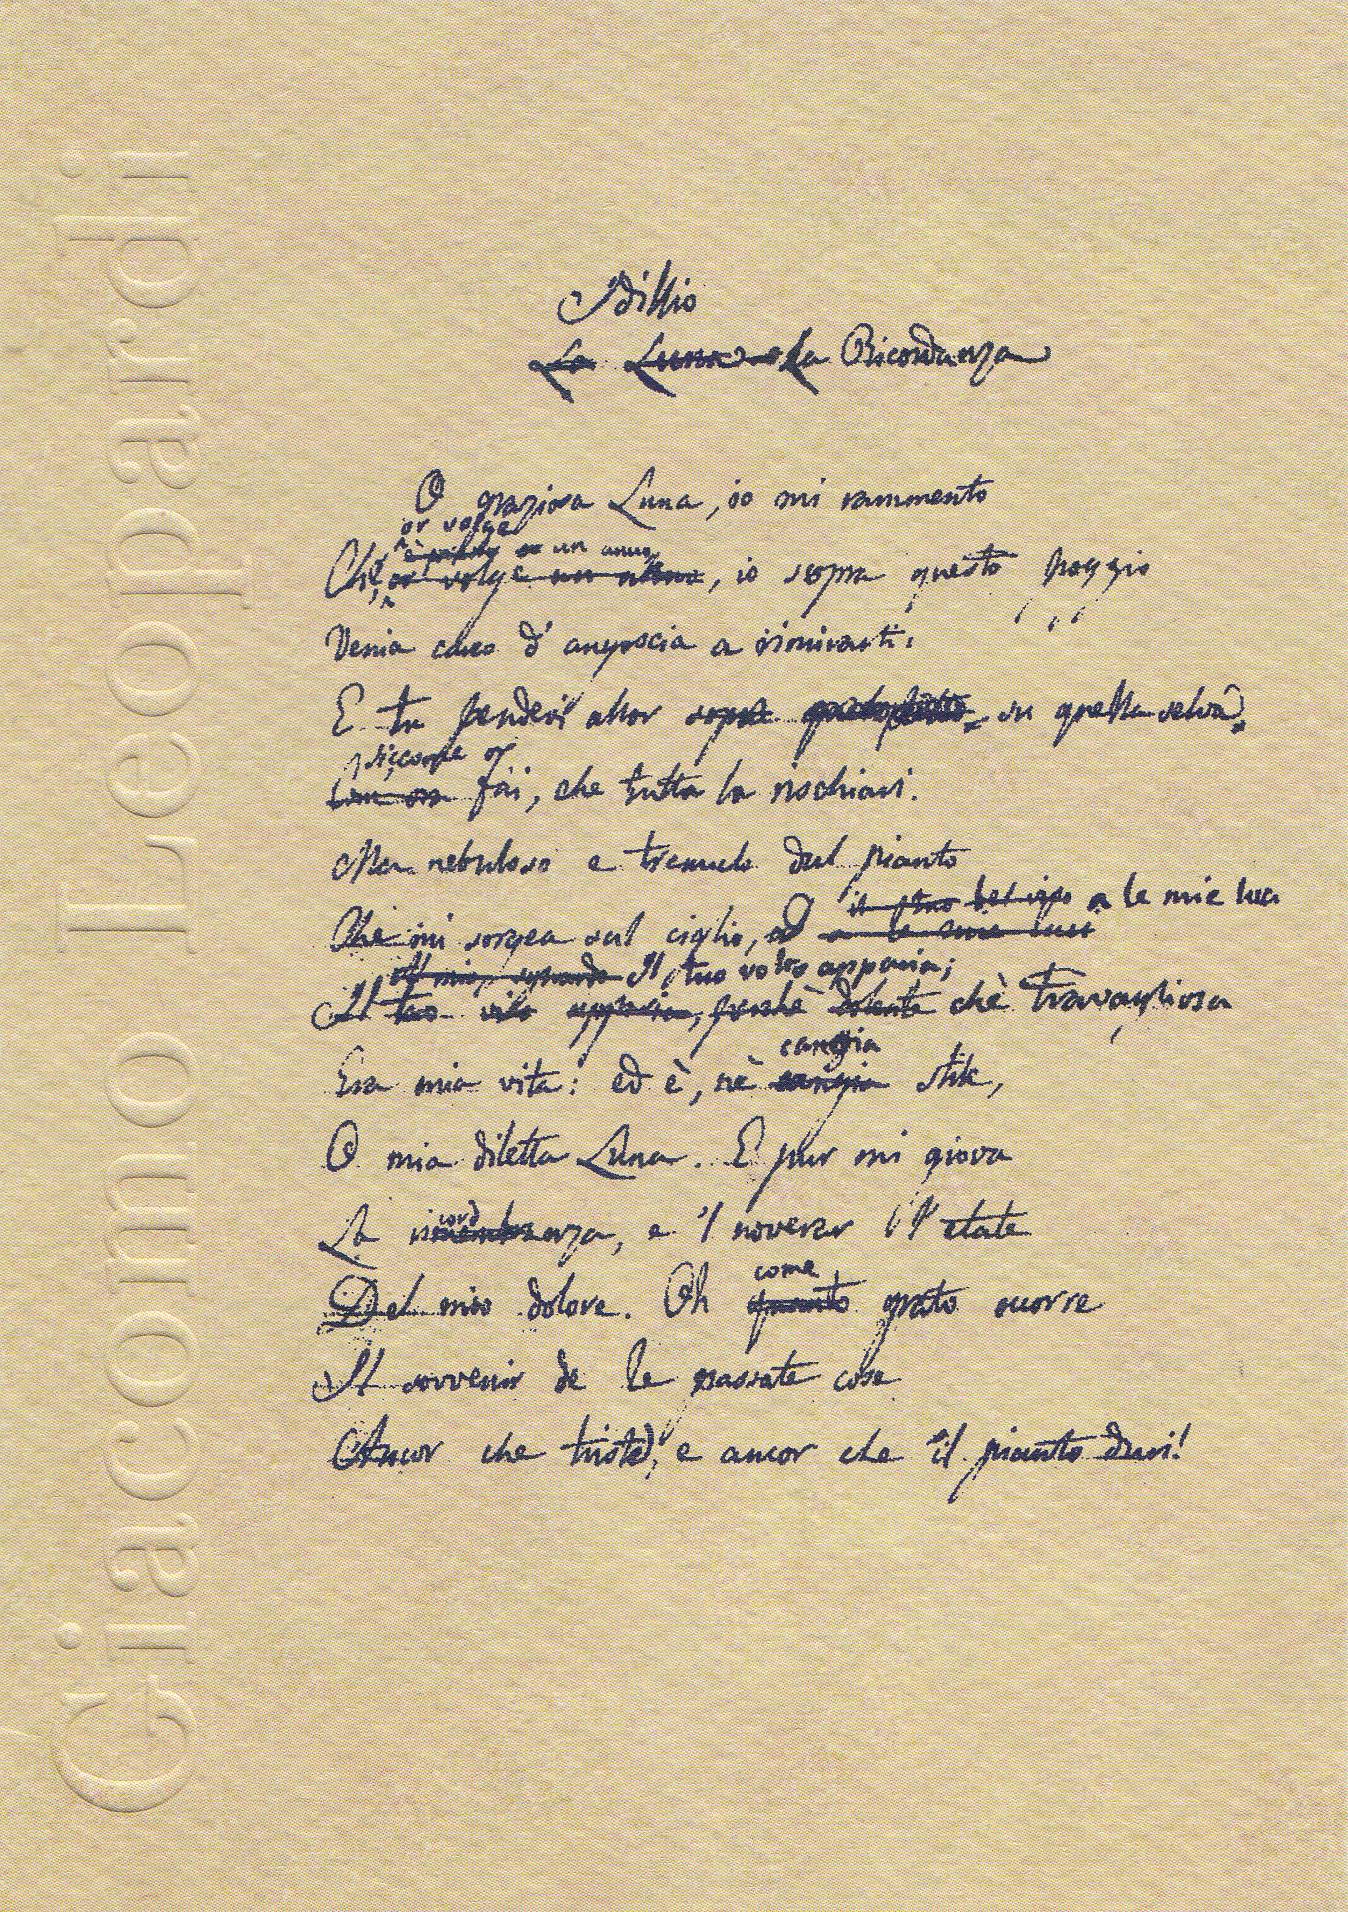 Giacomo Leopardi
Idillio
La Luna o La Ricordanza
O graziosa Luna, io mi rammento
or volge
è un anno
Che, or volge un anno, io sopra questo poggio
Venia carco d'angoscia a rimirarti:
E tu pendevi allor sopra su quella selva
siccome or
fai, che tutta la rischiari.
Ma nebuloso e tremulo dal pianto
il tuo bel viso a le mie luci
Che mi sorgea sul ciglio, a le mie luci
Al mio sguardo Il tuo volto apparia;
Il tuo viso apparia, perchè dolente chè travagliosa
cangia
Era mia vita: ed è, nè cangia stile,
O mia diletta Luna. E pur mi giova
cord
La rimembranza, e 'l noverar l'etate
come
Del mio dolore. Oh quanto grato occorre
Il sovvenir de le passate cose
Ancor che triste, e ancor che il pianto duri!